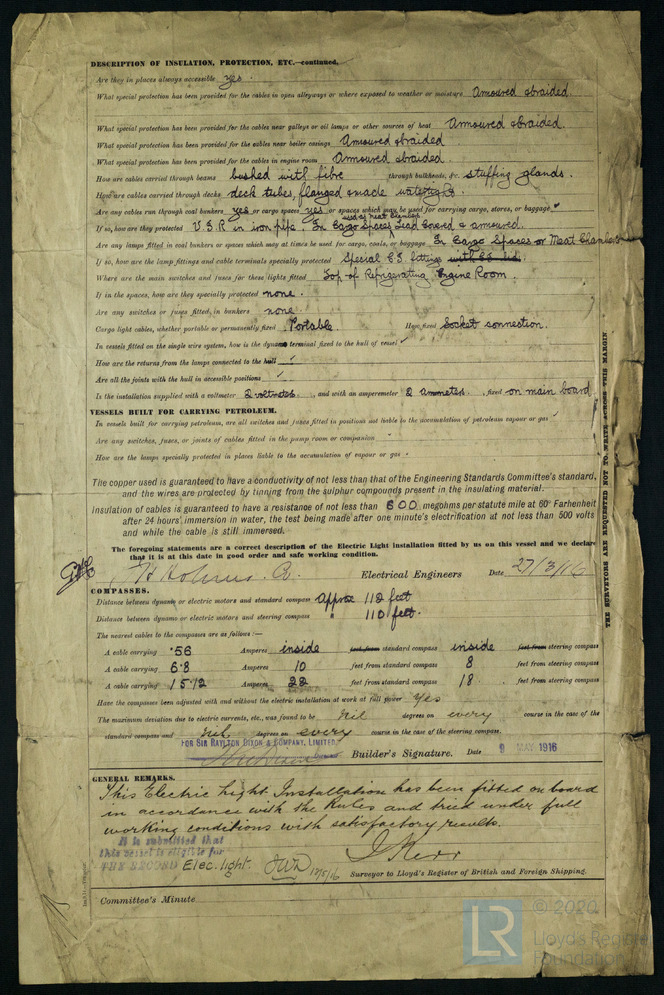 DESCRIPTION OF INSULATION, PROTECTION, ETC.—continued.
Are they in places always accessible yes.
What special protection has been provided for the cables in open alleyways or where exposed to weather or moisture Amoured &braided.
What special protection has been provided for the cables near galleys or oil lamps or other sources of heat Amoured &braided.
What special protection has been provided for the cables near boiler casings Amoured &braided
What special protection has been provided for the cables in engine room Amoured &braided.
How are cables carried through beams bushed with fibre through bulkheads, &c. stuffing glands.
How are cables carried through decks deck tubes, flanged &made watertight.
Are any cables run through coal bunkers yes or cargo spaces yes or spaces which may be used for carrying cargo, stores, or baggage
If so, how are they protected V.I.R in iron pipe. In Cargo Spaces and in Meat Chambers Lead Covered & amoured.
Are any lamps fitted in coal bunkers or spaces which may at times be used for cargo, coals, or baggage In Cargo Spaces or Meat Chambers
If so, how are the lamp fittings and cable terminals specially protected Special C.I. fittings
Where are the main switches and fuses for these lights fitted Top of Refrigerating Engine Room.
If in the spaces, how are they specially protected none.
Are any switches or fuses fitted in bunkers none
Cargo light cables, whether portable or permanently fixed Portable. How fixed Socket connection.
In vessels fitted on the single wire system, how is the dynamo terminal fixed to the hull of vessel ✓
How are the returns from the lamps connected to the hull ✓
Are all the joints with the hull in accessible positions ✓
Is the installation supplied with a voltmeter 2 voltmeters, and with an amperemeter 2 ammeters, fixed on main board
VESSELS BUILT FOR CARRYING PETROLEUM.
In vessels built for carrying petroleum, are all switches and fuses fitted in positions not liable to the accumulation of petroleum vapour or gas
Are any switches, fuses, or joints of cables fitted in the pump room or companion
How are the lamps specially protected in places liable to the accumulation of vapour or gas
The copper used is guaranteed to have a conductivity of not less than that of the Engineering Standards Committee's standard,
and the wires are protected by tinning from the sulphur compounds present in the insulating material.
Insulation of cables is guaranteed to have a resistance of not less than 600 megohms per statute mile at 60° Farhenheit
after 24 hours' immersion in water, the test being made after one minute's electrification at not less than 500 volts
and while the cable is still immersed.
The foregoing statements are a correct description of the Electric Light installation fitted by us on this vessel and we declare
that it is at this date in good order and safe working condition.
Holmes. Co. Electrical Engineers Date 27/3/16
COMPASSES.
Distance between dynamo or electric motors and standard compass Approx 112 feet
Distance between dynamo or electric motors and steering compass " 110 feet.
The nearest cables to the compasses are as follows:—
A cable carrying ·56 Amperes inside feet from standard compass inside feet from steering compass
A cable carrying 6·8 Amperes 10 feet from standard compass 8 feet from steering compass
A cable carrying 15·12 Amperes 22 feet from standard compass 18 feet from steering compass
Have the compasses been adjusted with and without the electric installation at work at full power Yes
The maximum deviation due to electric currents, etc., was found to be Nil degrees on every course in the case of the
standard compass and nil degrees on every course in the case of the steering compass.
FOR SIR RAYLTON DIXON & COMPANY, LIMITED
Builder's Signature. Date 9 MAY 1916
GENERAL REMARKS.
This Electric Light Installation has been fitted on board
in accordance with the Rules and tried under full
working conditions with satisfactory results.
It is submitted that
this vessel is eligible for
THE RECORD Elec. light. 12/5/16
J Kerr
Surveyor to Lloyd's Register of British and Foreign Shipping.
Committee's Minute
THE SURVEYORS ARE REQUESTED NOT TO WRITE ACROSS THIS MARGIN
LR
© 2020
Lloyd's Register
Foundation